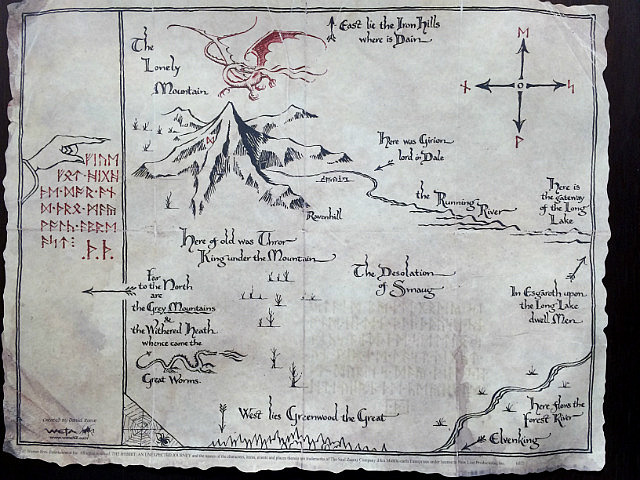 The
Lonely
Mountain
East lie the Iron Hills
where is Dain
ᛖ
ᚾ
ᛋ
ᚹ
ᛞ
Here was Girion
lord in Dale
the Running
River
Here is
the gateway
of the Long
Lake
Ravenhill
ᚠᛁᚢᛖ
Here of old was Thror
King under the Mountain
The Desolation
of Smaug
In Esgaroth upon
the Long Lake
dwell Men
Far
to the North
are
the Grey Mountains
&
the Withered Heath
whence came the
Great Worms.
West lies Greenwood the Great
Here flows the
Forest River
Elvenking
Created by Daniel Reeve
WETA